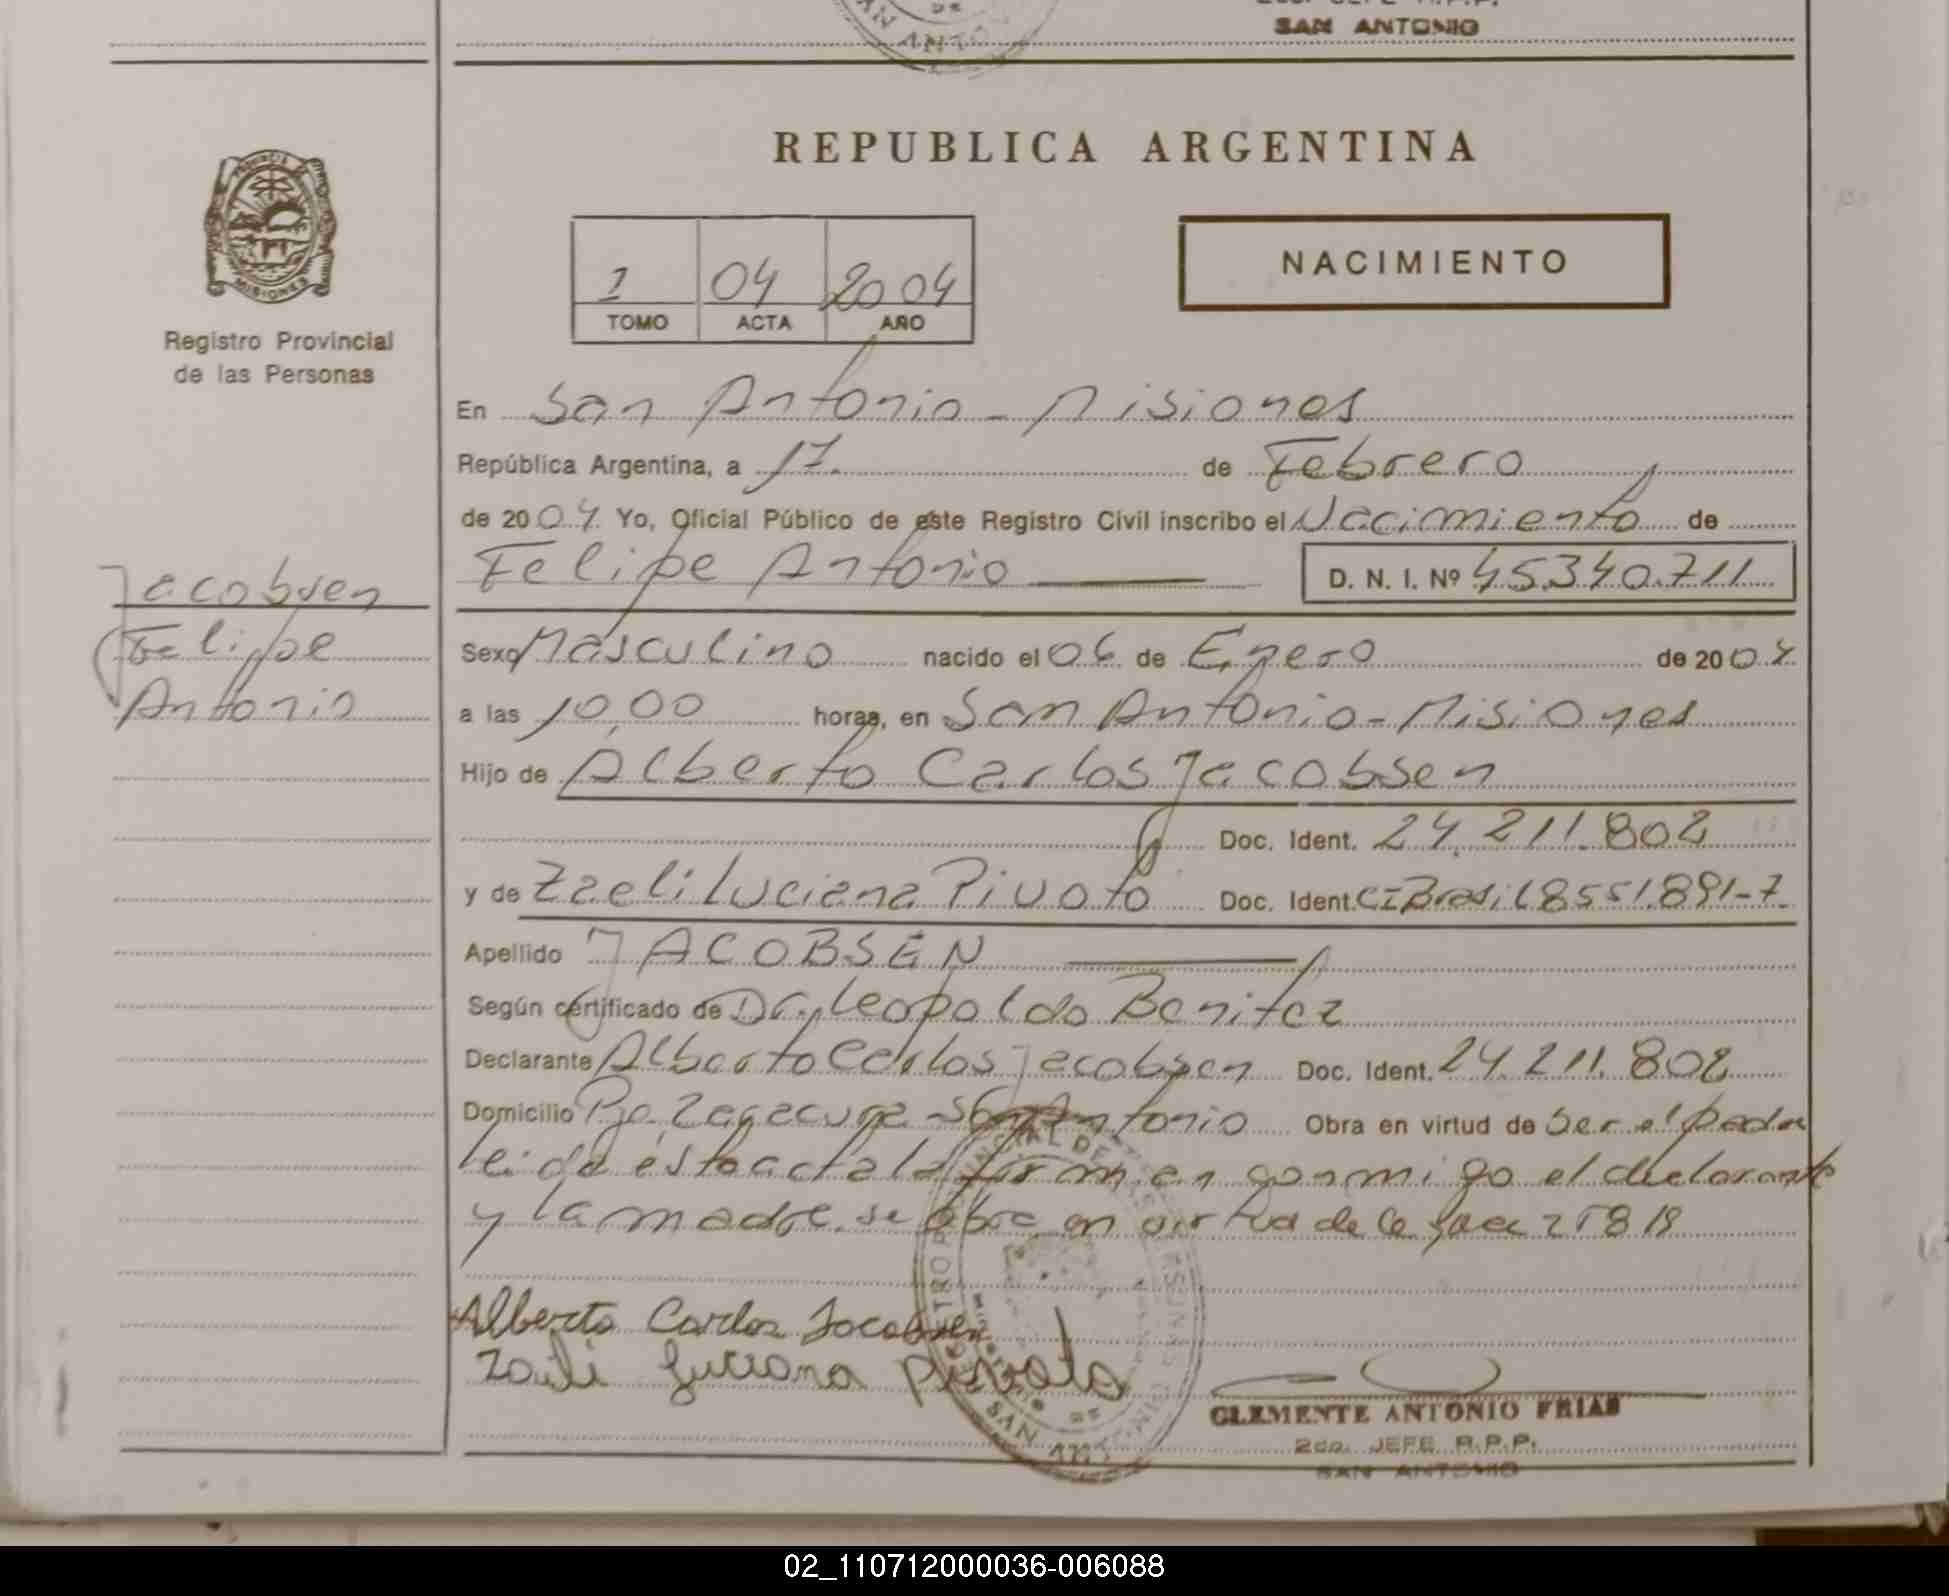 SAN ANTONIO
REPUBLICA ARGENTINA
MISIONES
Registro Provincial
de las Personas
1 04 2004
TOMO ACTA AÑO
NACIMIENTO
Jacobsen
Felipe
Antonio
En San Antonio - Misiones
República Argentina, a 17. de Febrero
de 2004 Yo, Oficial Público de este Registro Civil inscribo el Nacimiento de
Felipe Antonio D. N. I. Nº 45.340.711
Sexo Masculino nacido el 06 de Enero de 2004
a las 10,00 horas, en San Antonio - Misiones
Hijo de Alberto Carlos Jacobsen
Doc. Ident. 24.211.802
y de Zaeli Luciana Pivoto Doc. Ident. CI Brasil 8551.891-7
Apellido JACOBSEN
Según certificado de Dr. Leopoldo Benitez
Declarante Alberto Carlos Jacobsen Doc. Ident. 24.211.802
Domicilio San Antonio Obra en virtud de Ser el padre
leida esta acta la firman conmigo el declarante
y la madre. se obre en virtud de la
Alberto Carlos Jacobsen
Luciana
SAN
CLEMENTE ANTONIO FRIAS
2do. JEFE R.P.P.
SAN ANTONIO
02_110712000036-006088